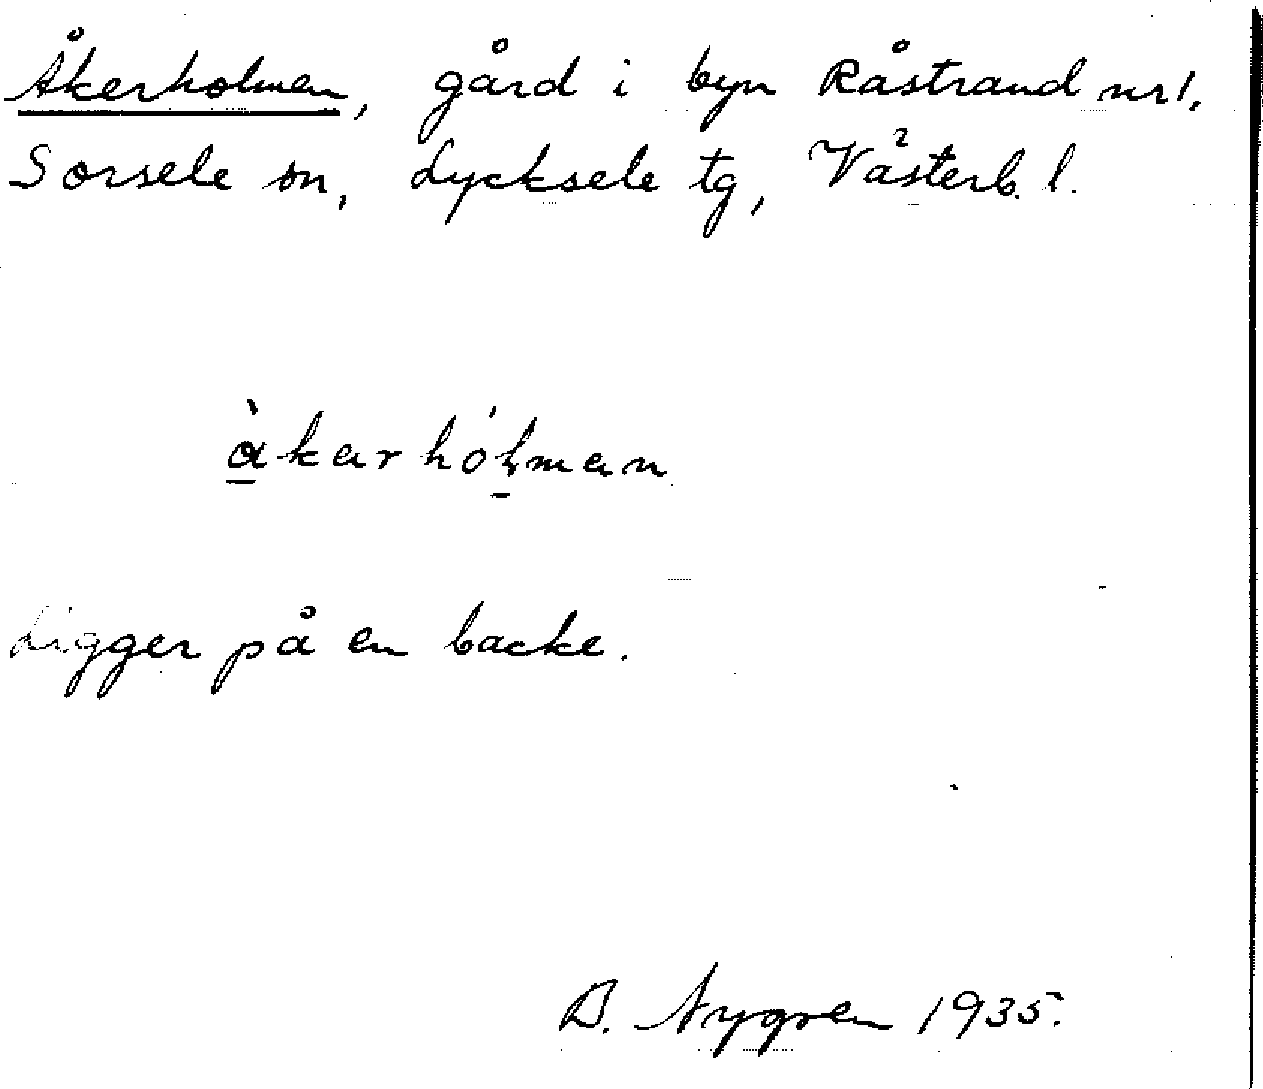 Åkerholmen, gård i byn Råstrand nr 1,
Sorsele sn, Lycksele tg, Västerb. l.
åkarhólman
Ligger på en backe.
B. Nygren 1935.